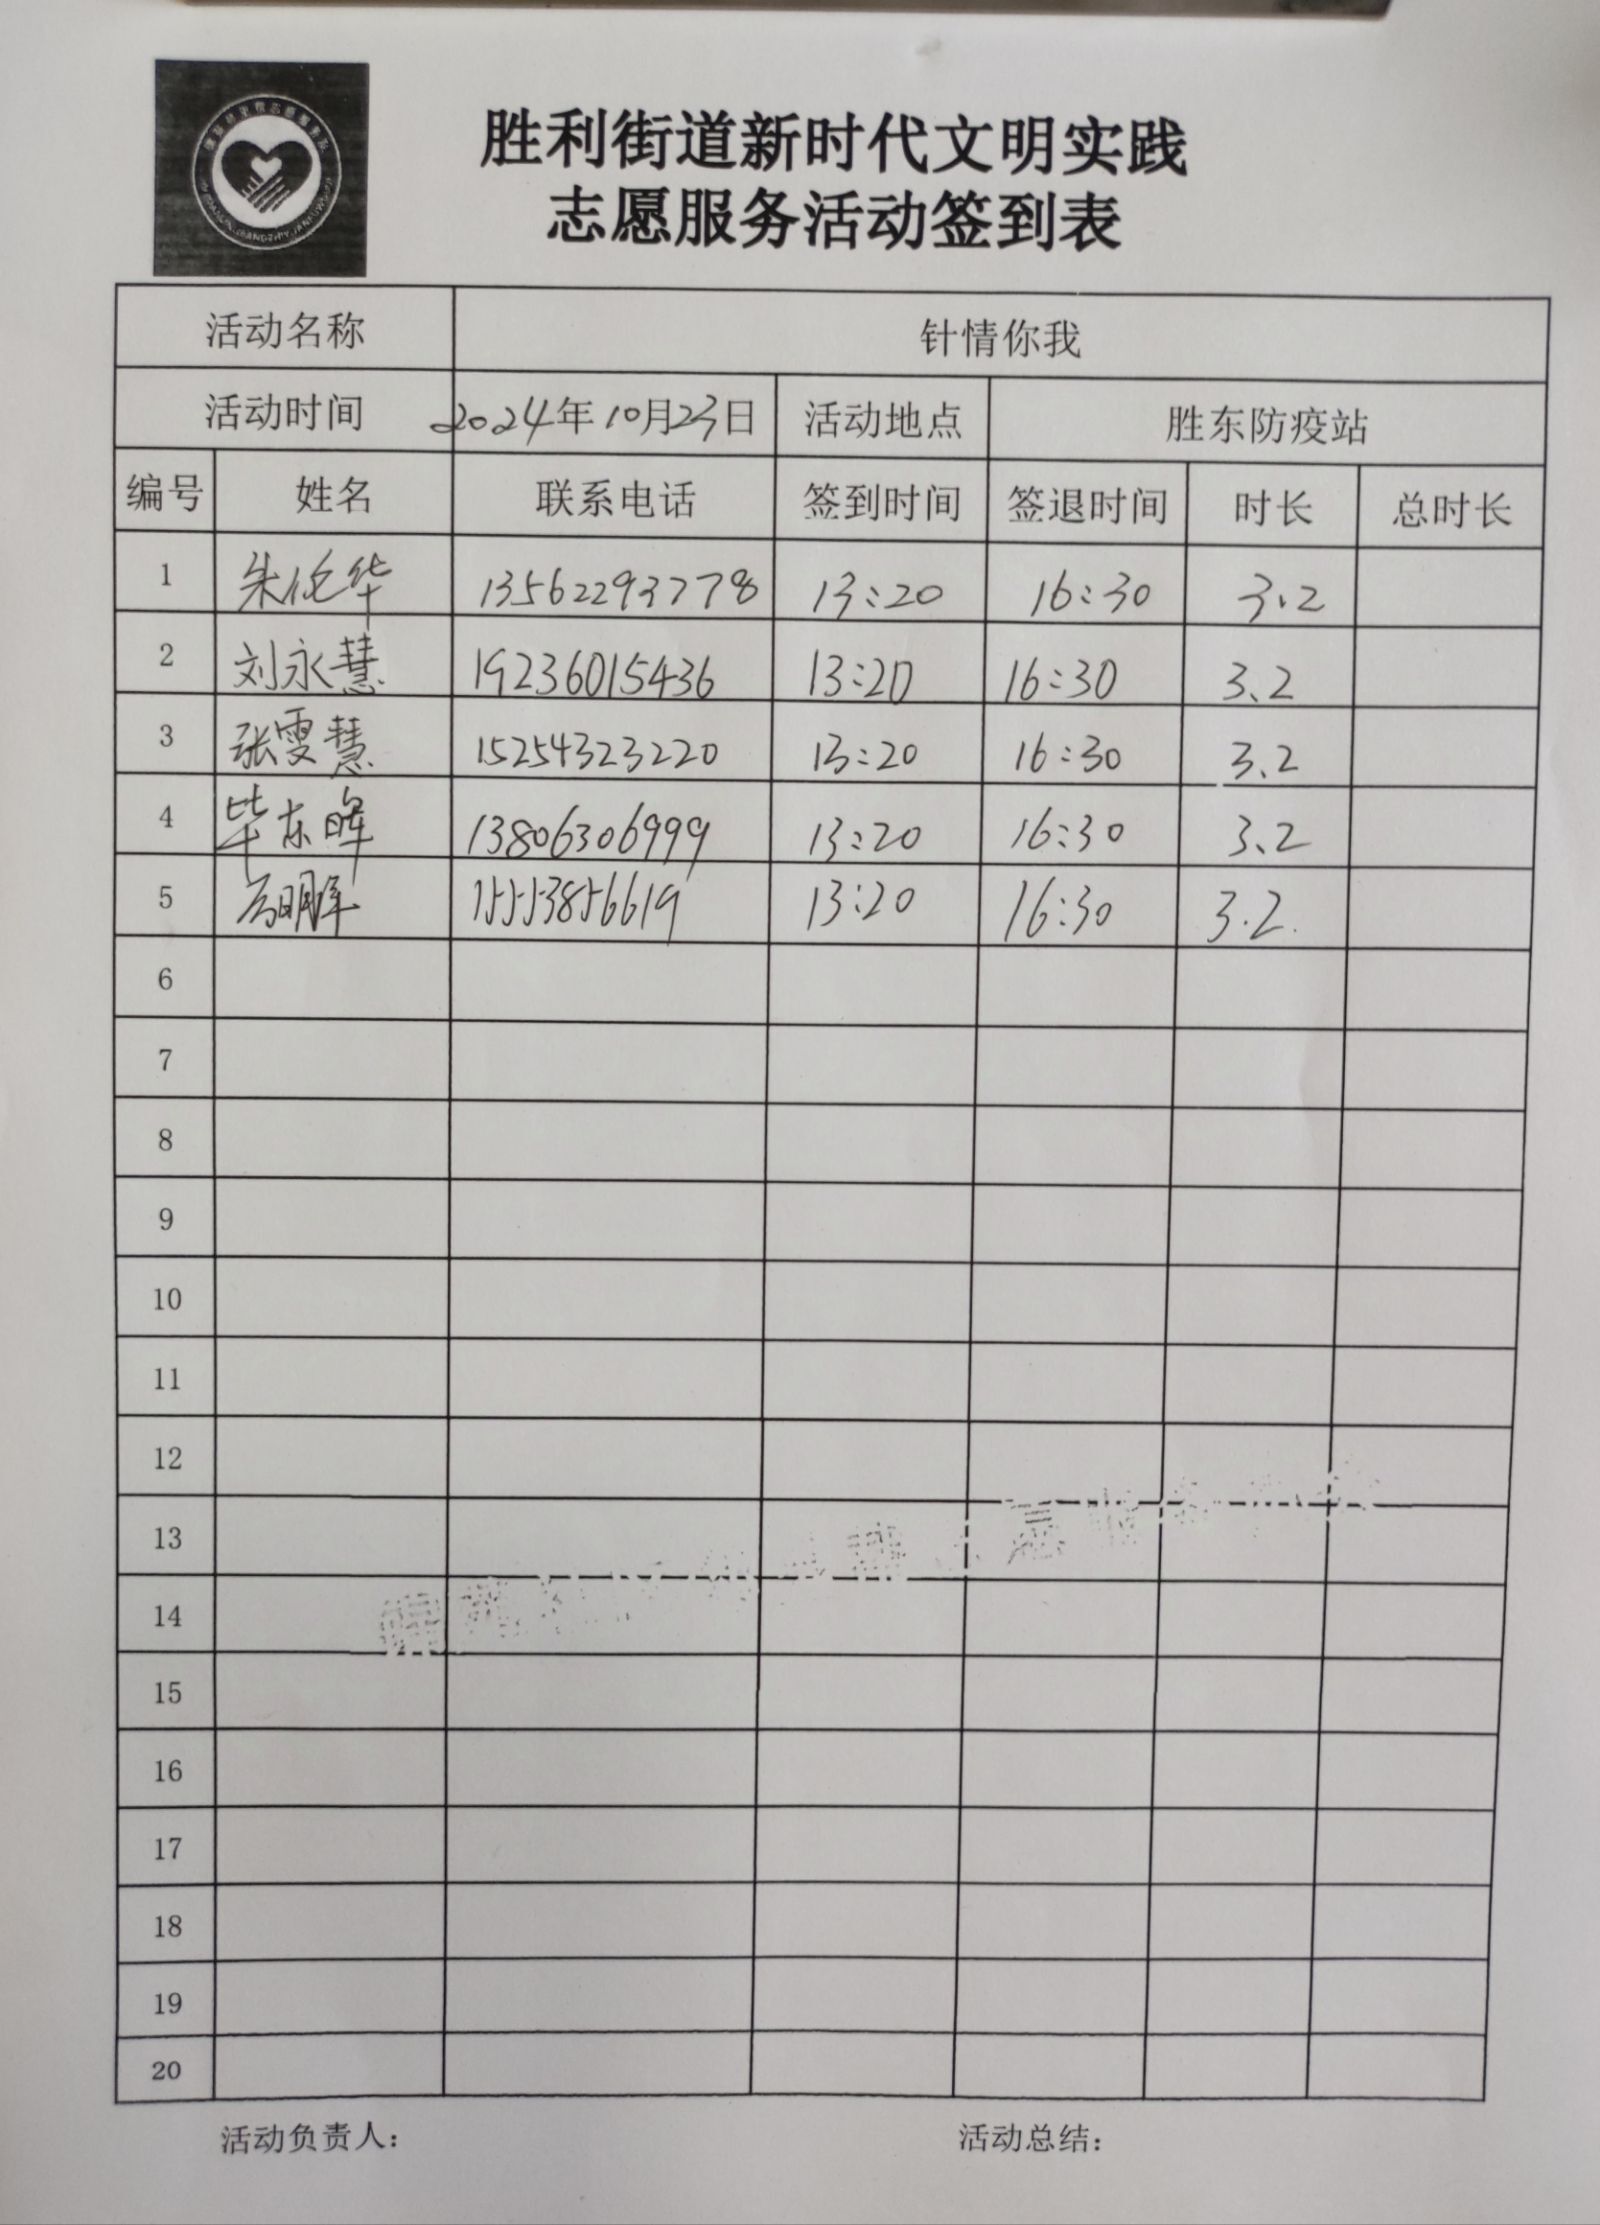 胜利街道新时代文明实践
志愿服务活动签到表
活动名称 针情你我
活动时间 2024年10月23日 活动地点 胜东防疫站
编号 姓名 联系电话 签到时间 签退时间 时长 总时长
1 朱伦华 13562293778 13:20 16:30 3.2
2 刘永慧 19236015436 13:20 16:30 3.2
3 张雯慧 15254323220 13:20 16:30 3.2
4 毕东晖 13806306999 13:20 16:30 3.2
5 15553856619 13:20 16:30 3.2
6
7
8
9
10
11
12
13
14
15
16
17
18
19
20
活动负责人： 活动总结：